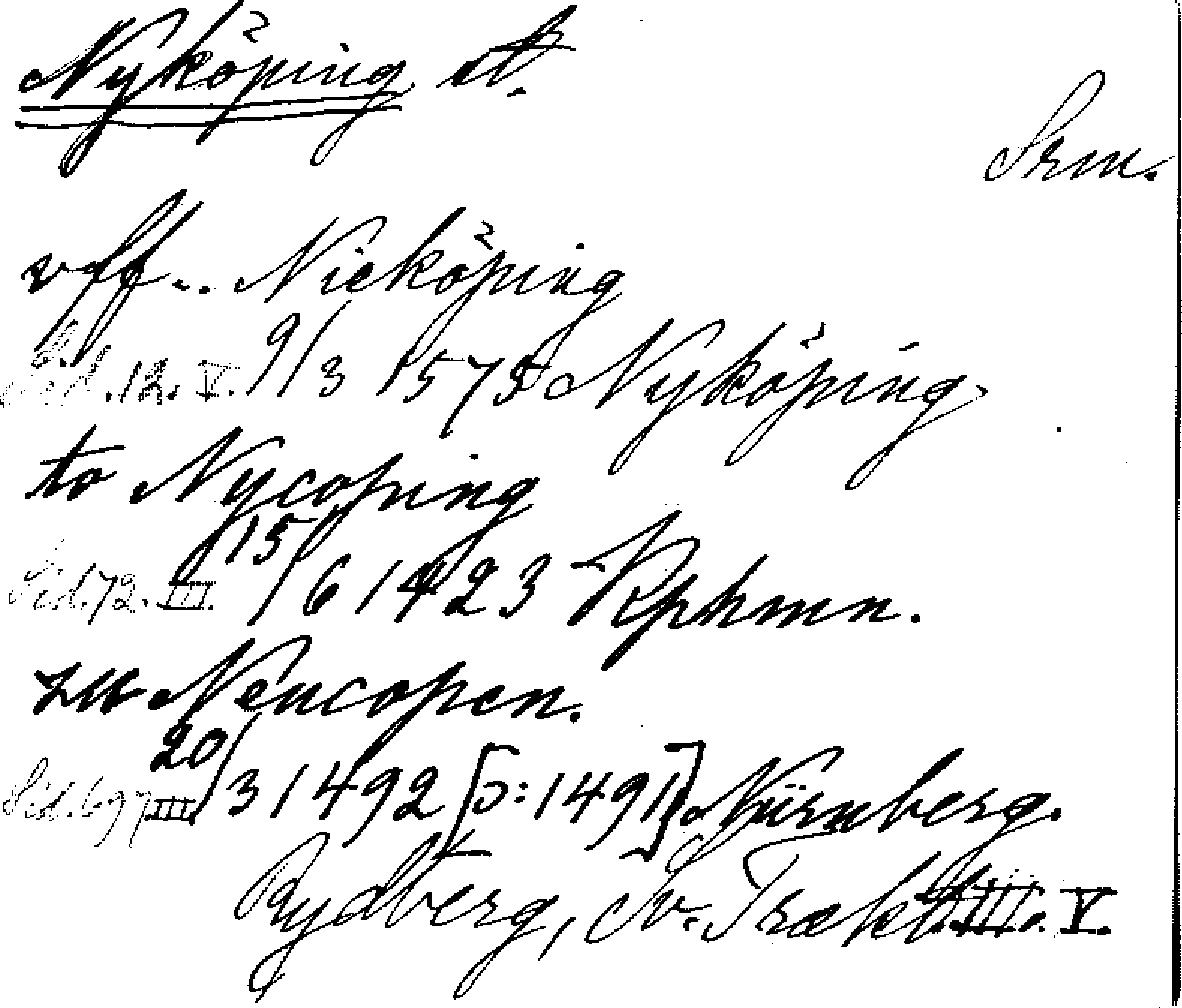 Nyköping st.
Srm.
vff... Nieköping
Sid. 12. V. 9/3 1575 Nyköping
to Nycoping
Sid. 72. III. 15/6 1423 Kphmn.
zu Neucopen.
Sid. 697 III 20/3 1492 [ɔ: 1491]. Nürnberg.
Rydberg, Sv. Trakt. III. V.